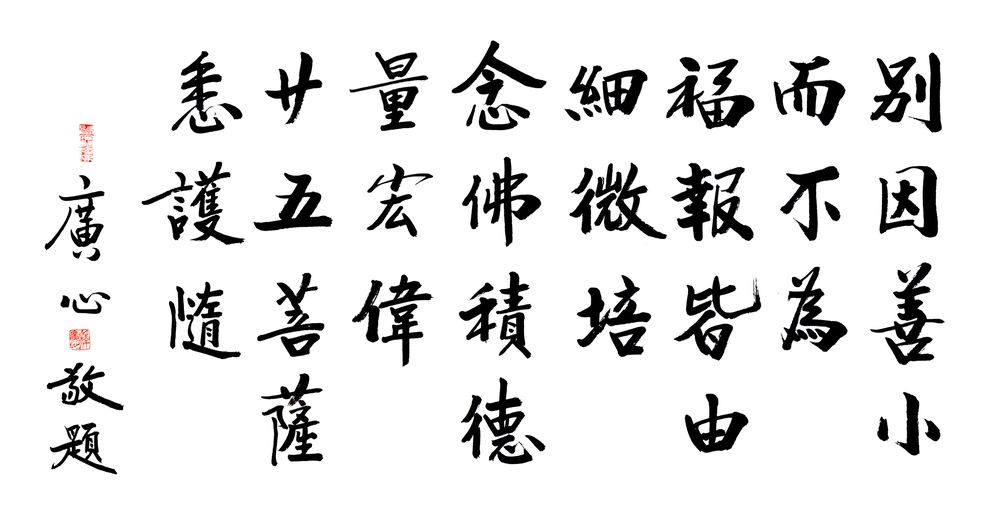 别因善小
而不為
福報皆由
細微培
念佛積德
量宏偉
廿五菩薩
悉護隨
廣心敬題